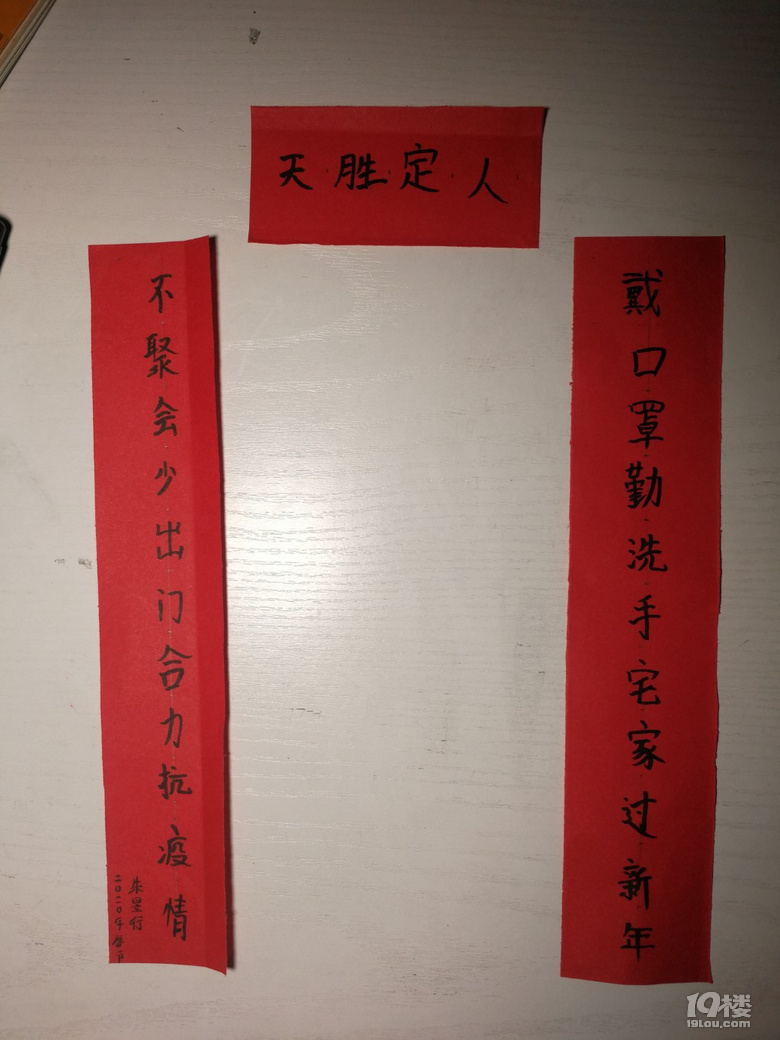 人定胜天
戴口罩勤洗手宅家过新年
不聚会少出门合力抗疫情
二〇二〇年春节
19楼
19lou.com